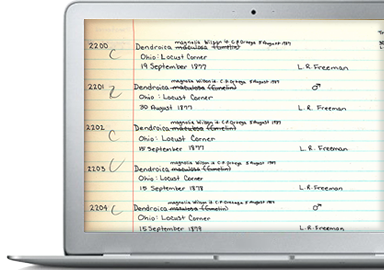 magnolia Wilson is C.P. Ortega 8 August 1989
2200 C Dendroica maculosa (Gmelin)
Ohio: Locust Corner
19 September 1877 L.R. Freeman
magnolia Wilson is C.P. Ortega 8 August 1989
2201 Dendroica maculosa (Gmelin) ♂
Ohio: Locust Corner
30 August 1877 L.R. Freeman
magnolia Wilson is C.P. Ortega 8 August 1989
2202 C Dendroica maculosa (Gmelin)
Ohio: Locust Corner
15 September 1877 L.R. Freeman
magnolia Wilson is C.P. Ortega 8 August 1989
2203 Dendroica maculosa (Gmelin)
Ohio: Locust Corner
15 September 1878 L.R. Freeman
magnolia Wilson is C.P. Ortega 8 August 1989
2204 C Dendroica maculosa (Gmelin) ♂
Ohio: Locust Corner
15 September 1879 L.R. Freeman